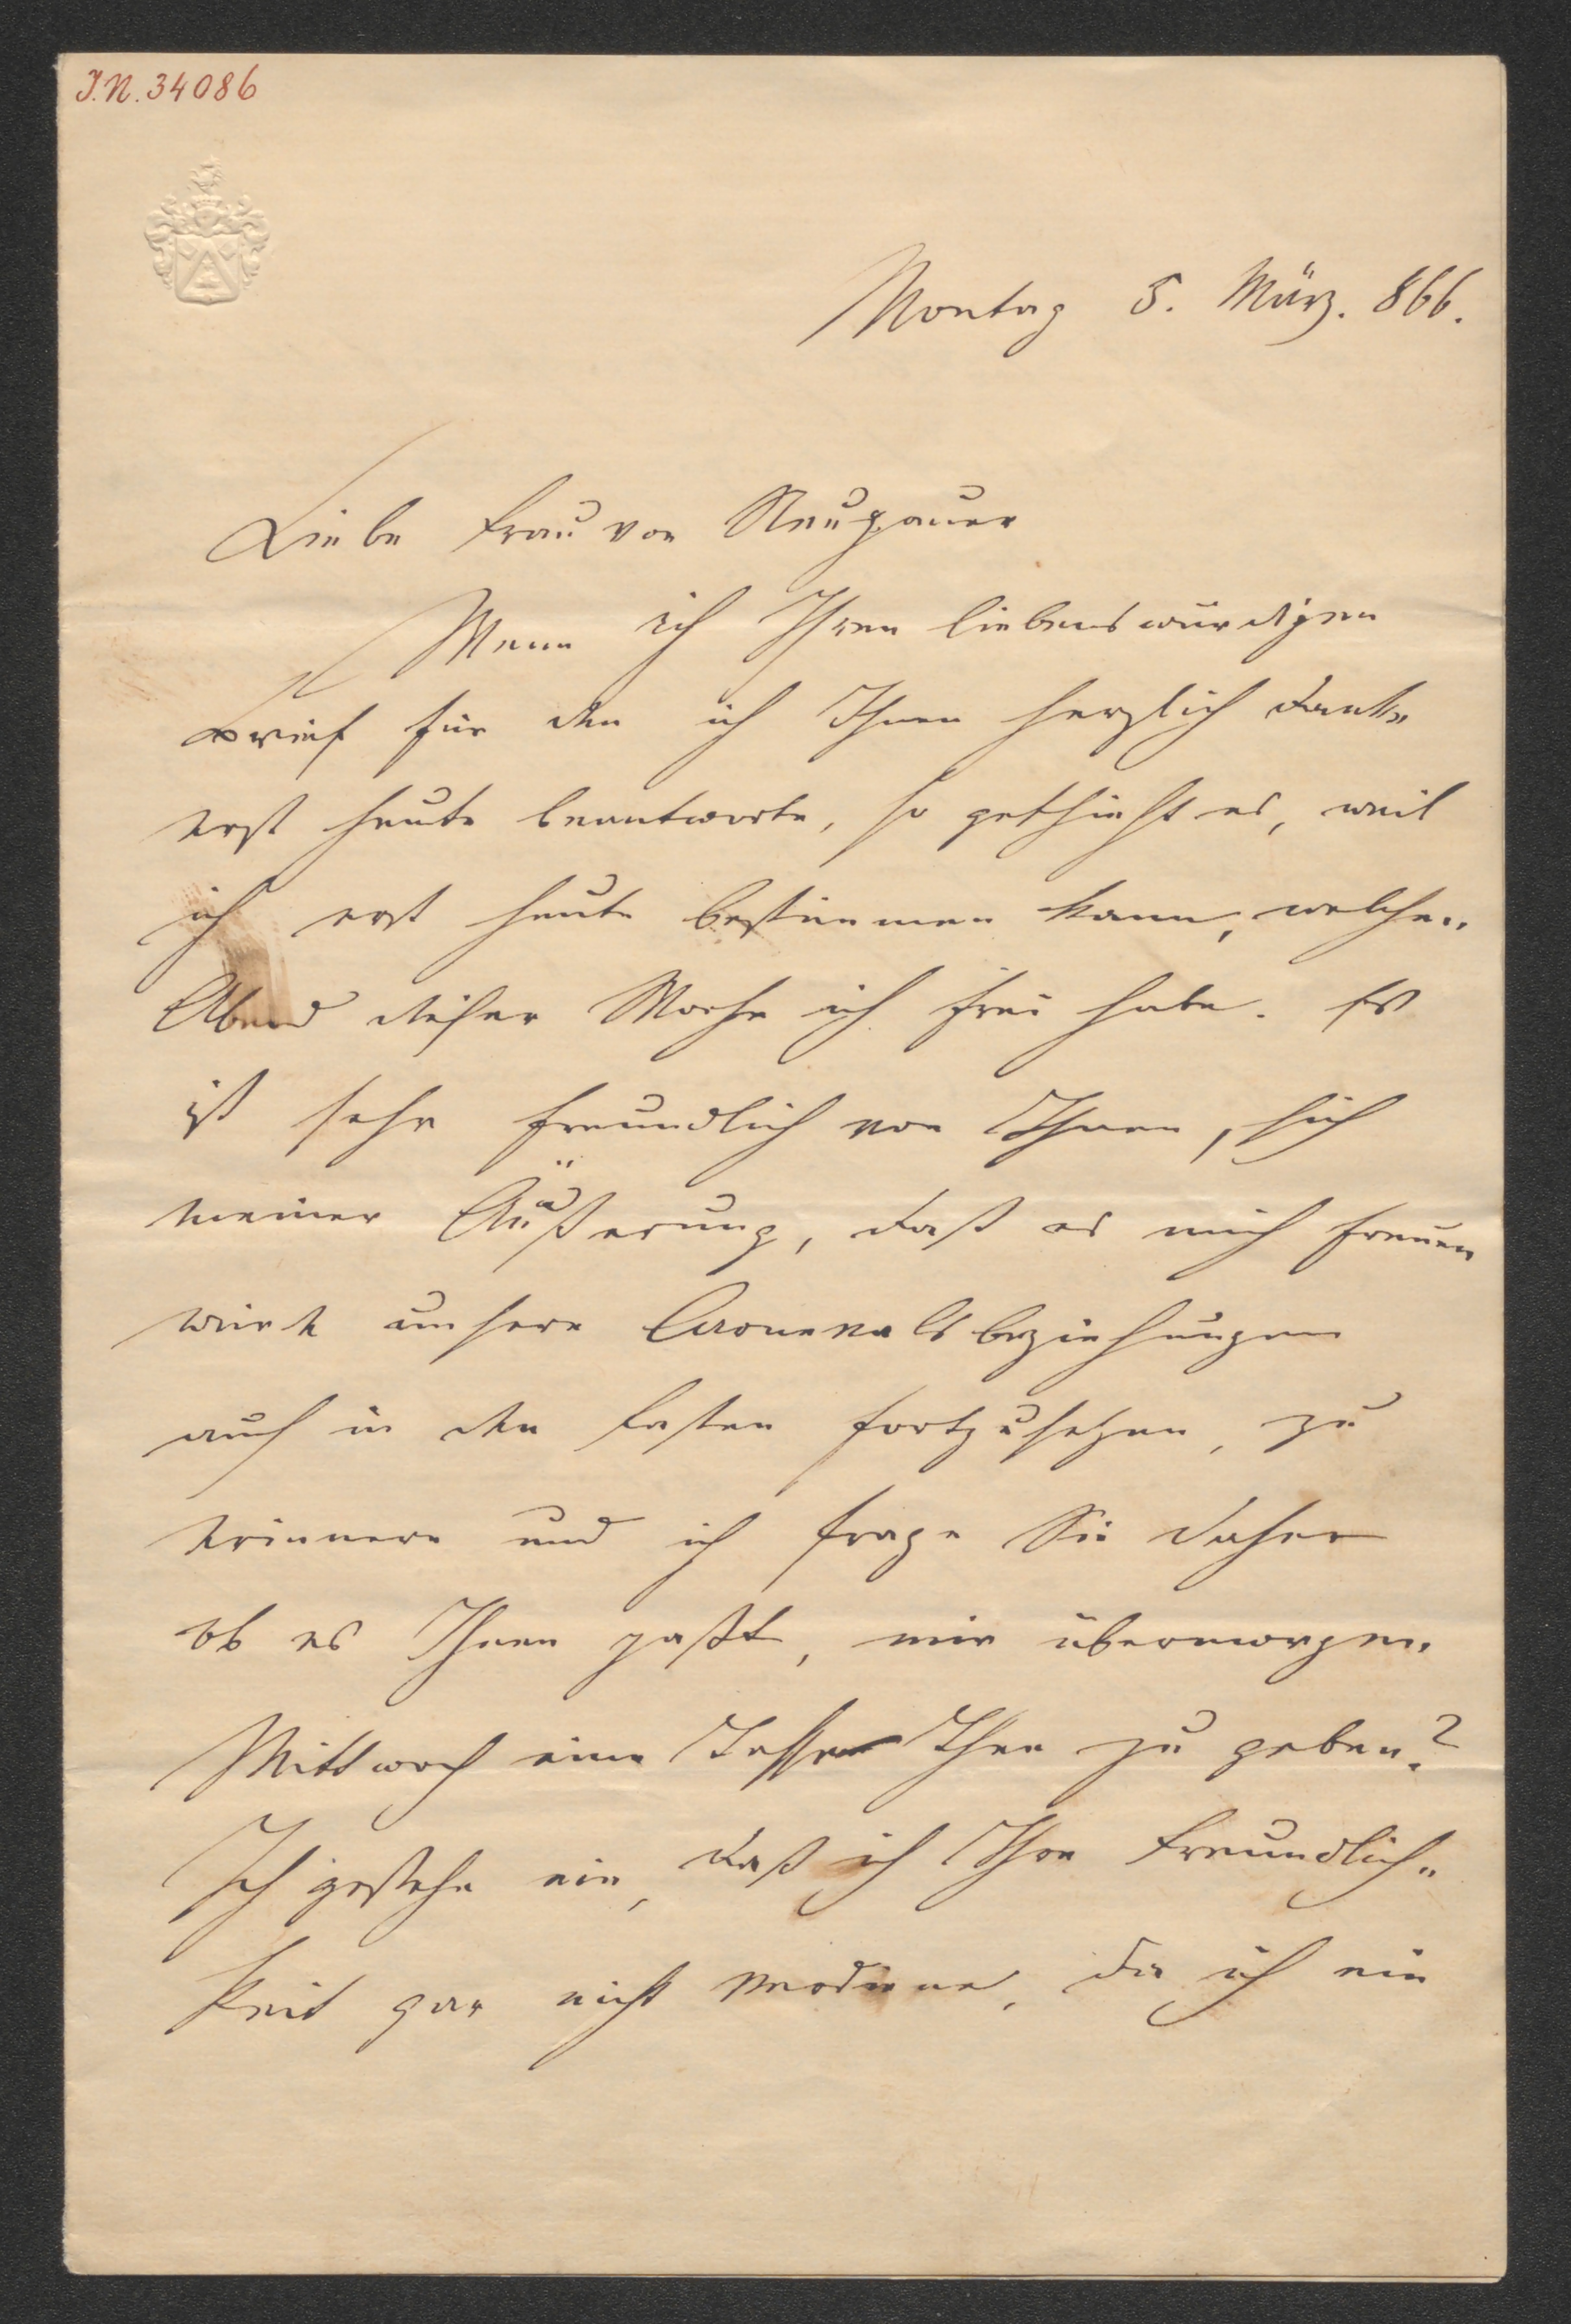 J.N. 34086
Montag 5. März. 866.
Liebe Frau von Neupauer
Wenn ich Ihren liebenswürdigen
Brief für den ich Ihnen herzlich danke
erst heute beantworte, so geschieht es, weil
ich erst heute bestimmen kann, welchen
Abend dieser Woche ich frei habe. Es
ist sehr freundlich von Ihnen, sich
meiner Äußerung, daß es mich freuen
würde unsere Carnevalsbeziehungen
auch in den Fasten fortzusetzen, zu
erinnern und ich frage Sie daher
ob es Ihnen paßt, mir übermorgen
Mittwoch eine Tasse Thee zu geben?
Ich gestehe ein, daß ich Ihre Freundlich„
keit gar nicht verdiene, da ich ein